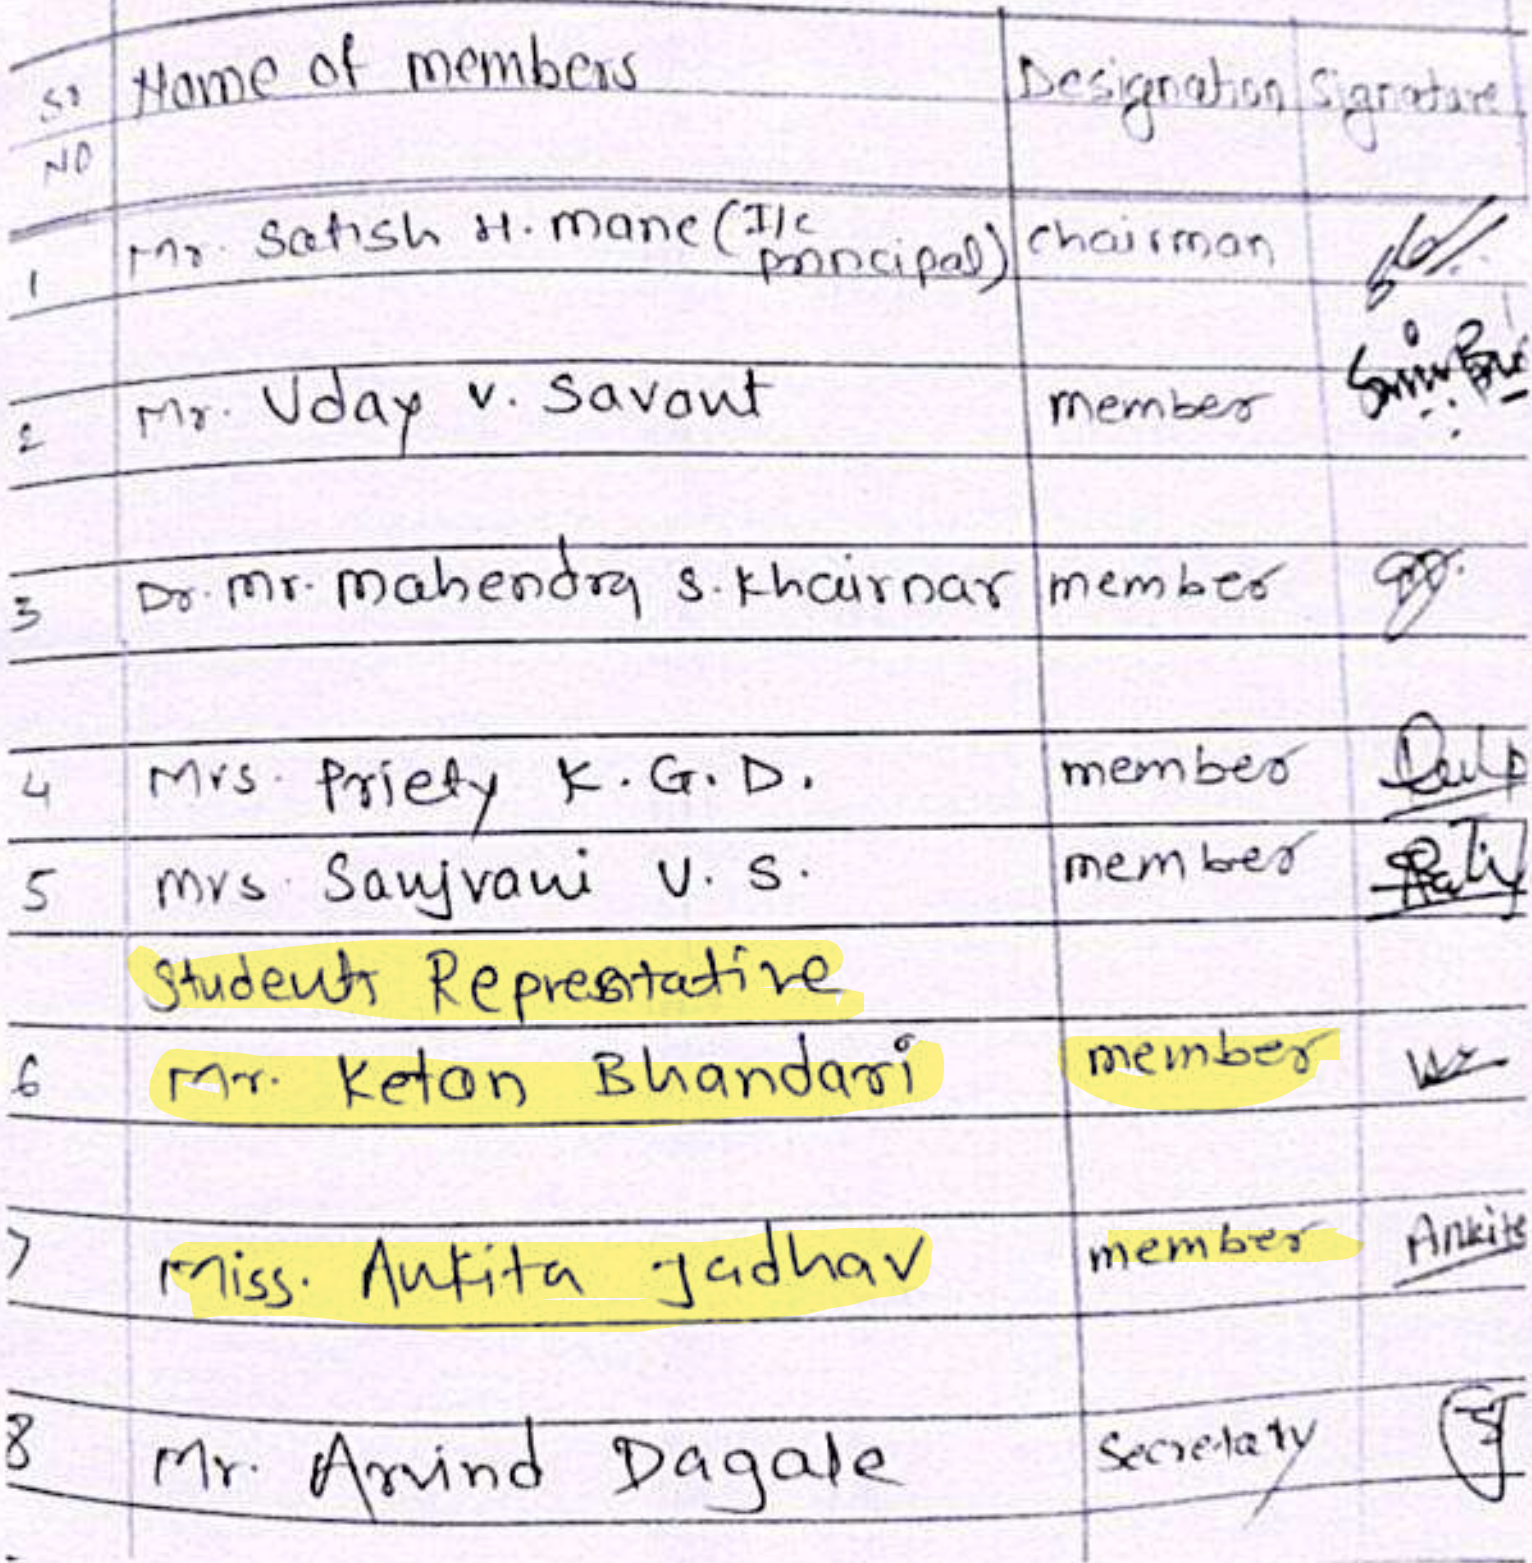 Sr Name of members Designation Signature
NO
1 Mr. Satish H. mane (I/c principal) chairman
2 Mr. Uday V. Savant member
3 Dr. Mr. Mahendra S. Khairnar member
4 Mrs. Priety K. G. D. member
5 Mrs. Sanjvani V. S. member
Students Represtative
6 Mr. Ketan Bhandari member
7 Miss. Ankita Jadhav member Ankita
8 Mr. Arvind Dagale Secretary